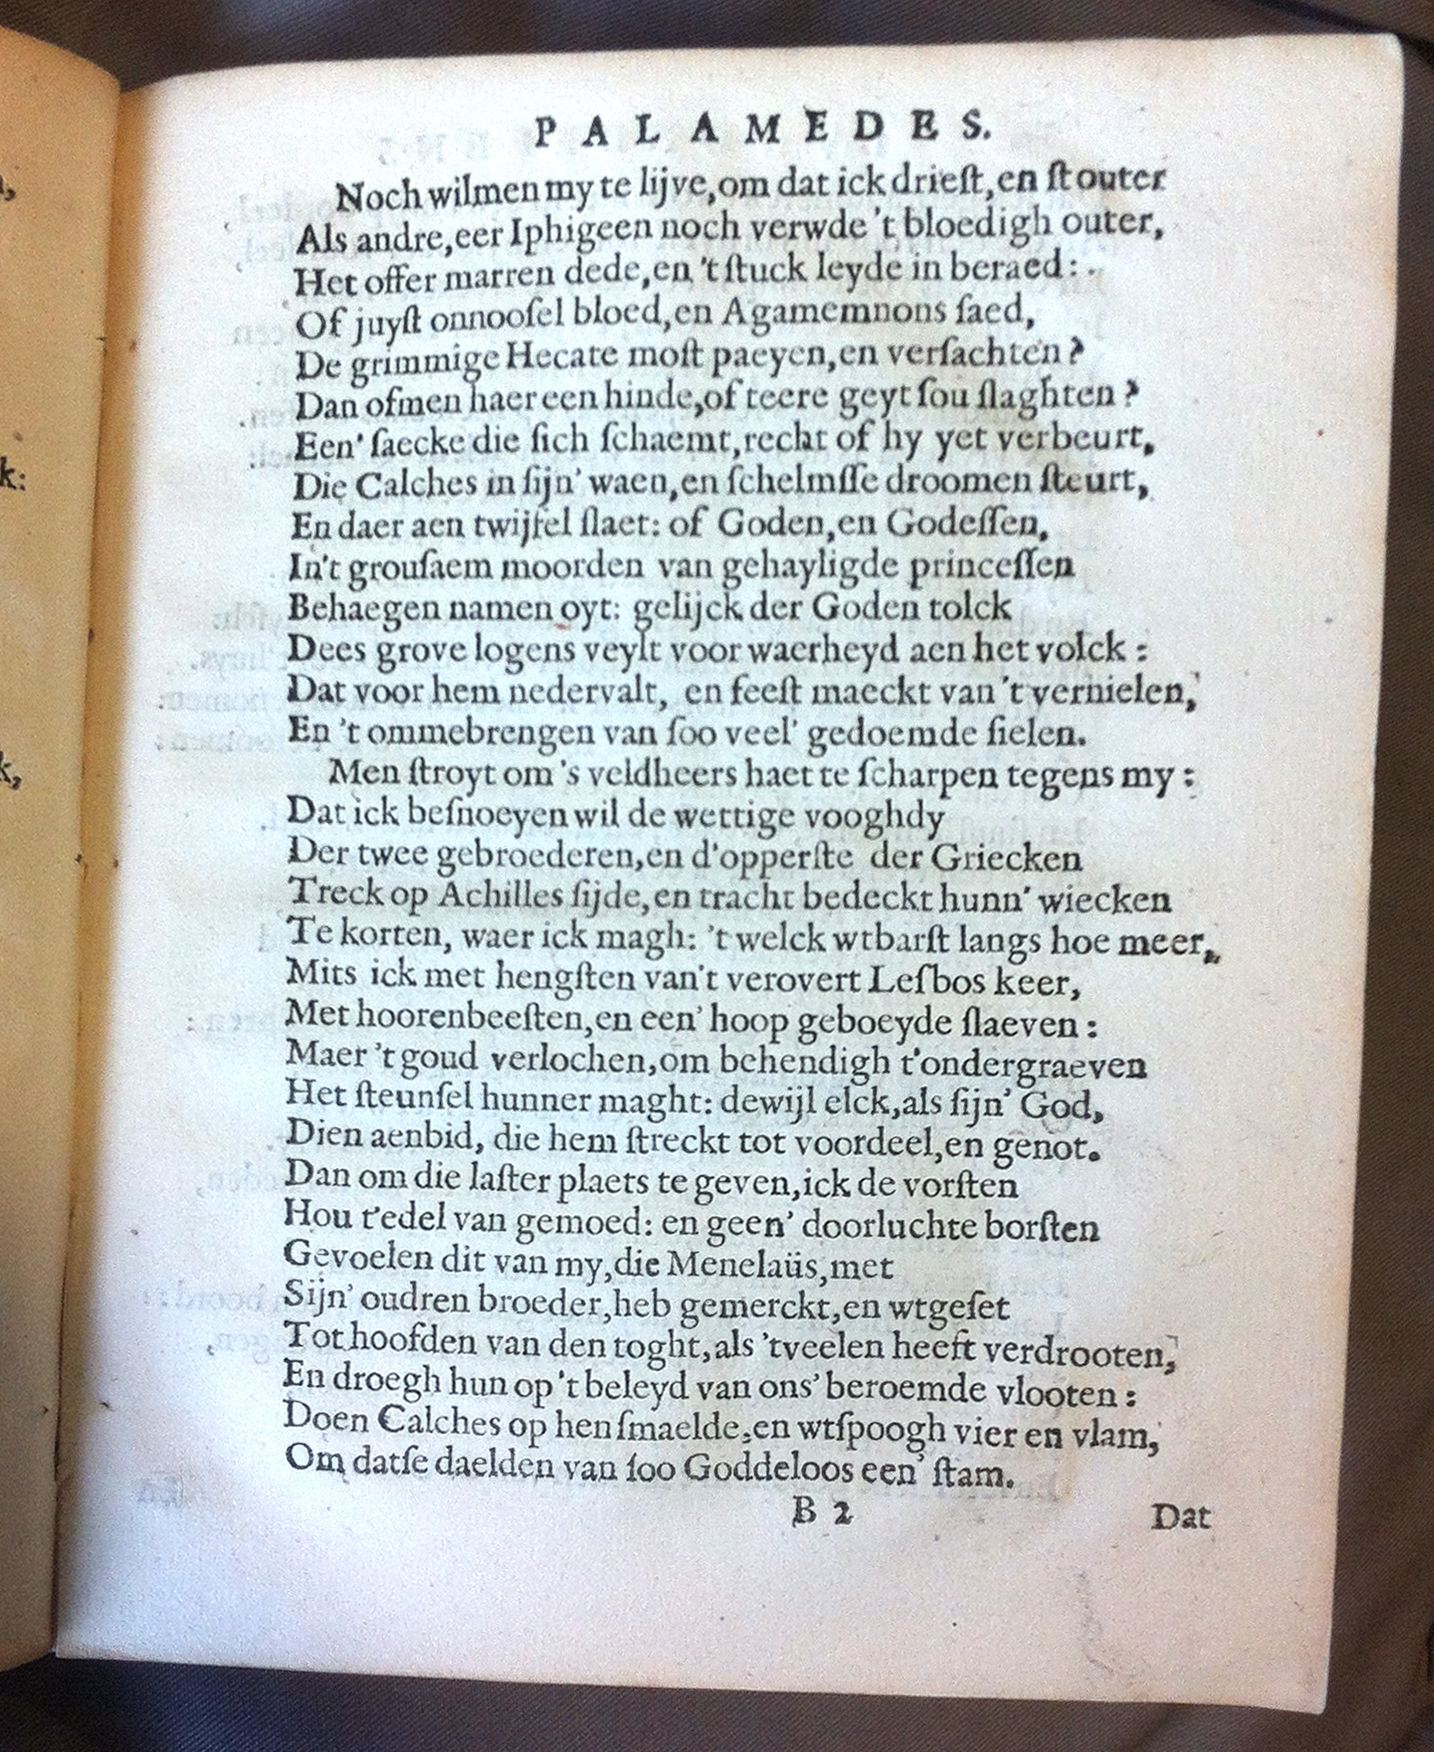 PALAMEDES.
Noch wilmen my te lijve,om dat ick drieſt,en ſtouter
Als andre,eer Iphigeen noch verwde 't bloedigh outer,
Het offer marren dede,en 't ſtuck leyde in beraed:
Of juyſt onnooſel bloed,en Agamemnons ſaed,
De grimmige Hecate moſt paeyen,en verſachten?
Dan ofmen haer een hinde,of teere geyt ſou ſlaghten?
Een' ſaecke die ſich ſchaemt,recht of hy yet verbeurt,
Die Calches in ſijn' waen,en ſchelmſſe droomen ſteurt,
En daer aen twijfel ſlaet: of Goden,en Godeſſen,
In't grouſaem moorden van gehayligde princeſſen
Behaegen namen oyt: gelijck der Goden tolck
Dees grove logens veylt voor waerheyd aen het volck:
Dat voor hem nedervalt, en feeſt maeckt van 't vernielen,
En 't ommebrengen van ſoo veel' gedoemde ſielen.
Men ſtroyt om 's veldheers haet te ſcharpen tegens my:
Dat ick beſnoeyen wil de wettige vooghdy
Der twee gebroederen,en d'opperſte der Griecken
Treck op Achilles ſijde,en tracht bedeckt hunn' wiecken
Te korten, waer ick magh: 't welck wtbarſt langs hoe meer,
Mits ick met hengſten van't verovert Leſbos keer,
Met hoorenbeeſten,en een' hoop geboeyde ſlaeven:
Maer 't goud verlochen,om behendigh t'ondergraeven
Het ſteunſel hunner maght: dewijl elck,als ſijn' God,
Dien aenbid, die hem ſtreckt tot voordeel,en genot.
Dan om die laſter plaets te geven,ick de vorſten
Hou t'edel van gemoed: en geen' doorluchte borſten
Gevoelen dit van my,die Menelaüs,met
Sijn' oudren broeder,heb gemerckt,en wtgeſet
Tot hoofden van den toght,als 'tveelen heeft verdrooten,
En droegh hun op 't beleyd van ons' beroemde vlooten:
Doen Calches op hen ſmaelde,en wtſpoogh vier en vlam,
Om datſe daelden van ſoo Goddeloos een' ſtam.
B 2 Dat